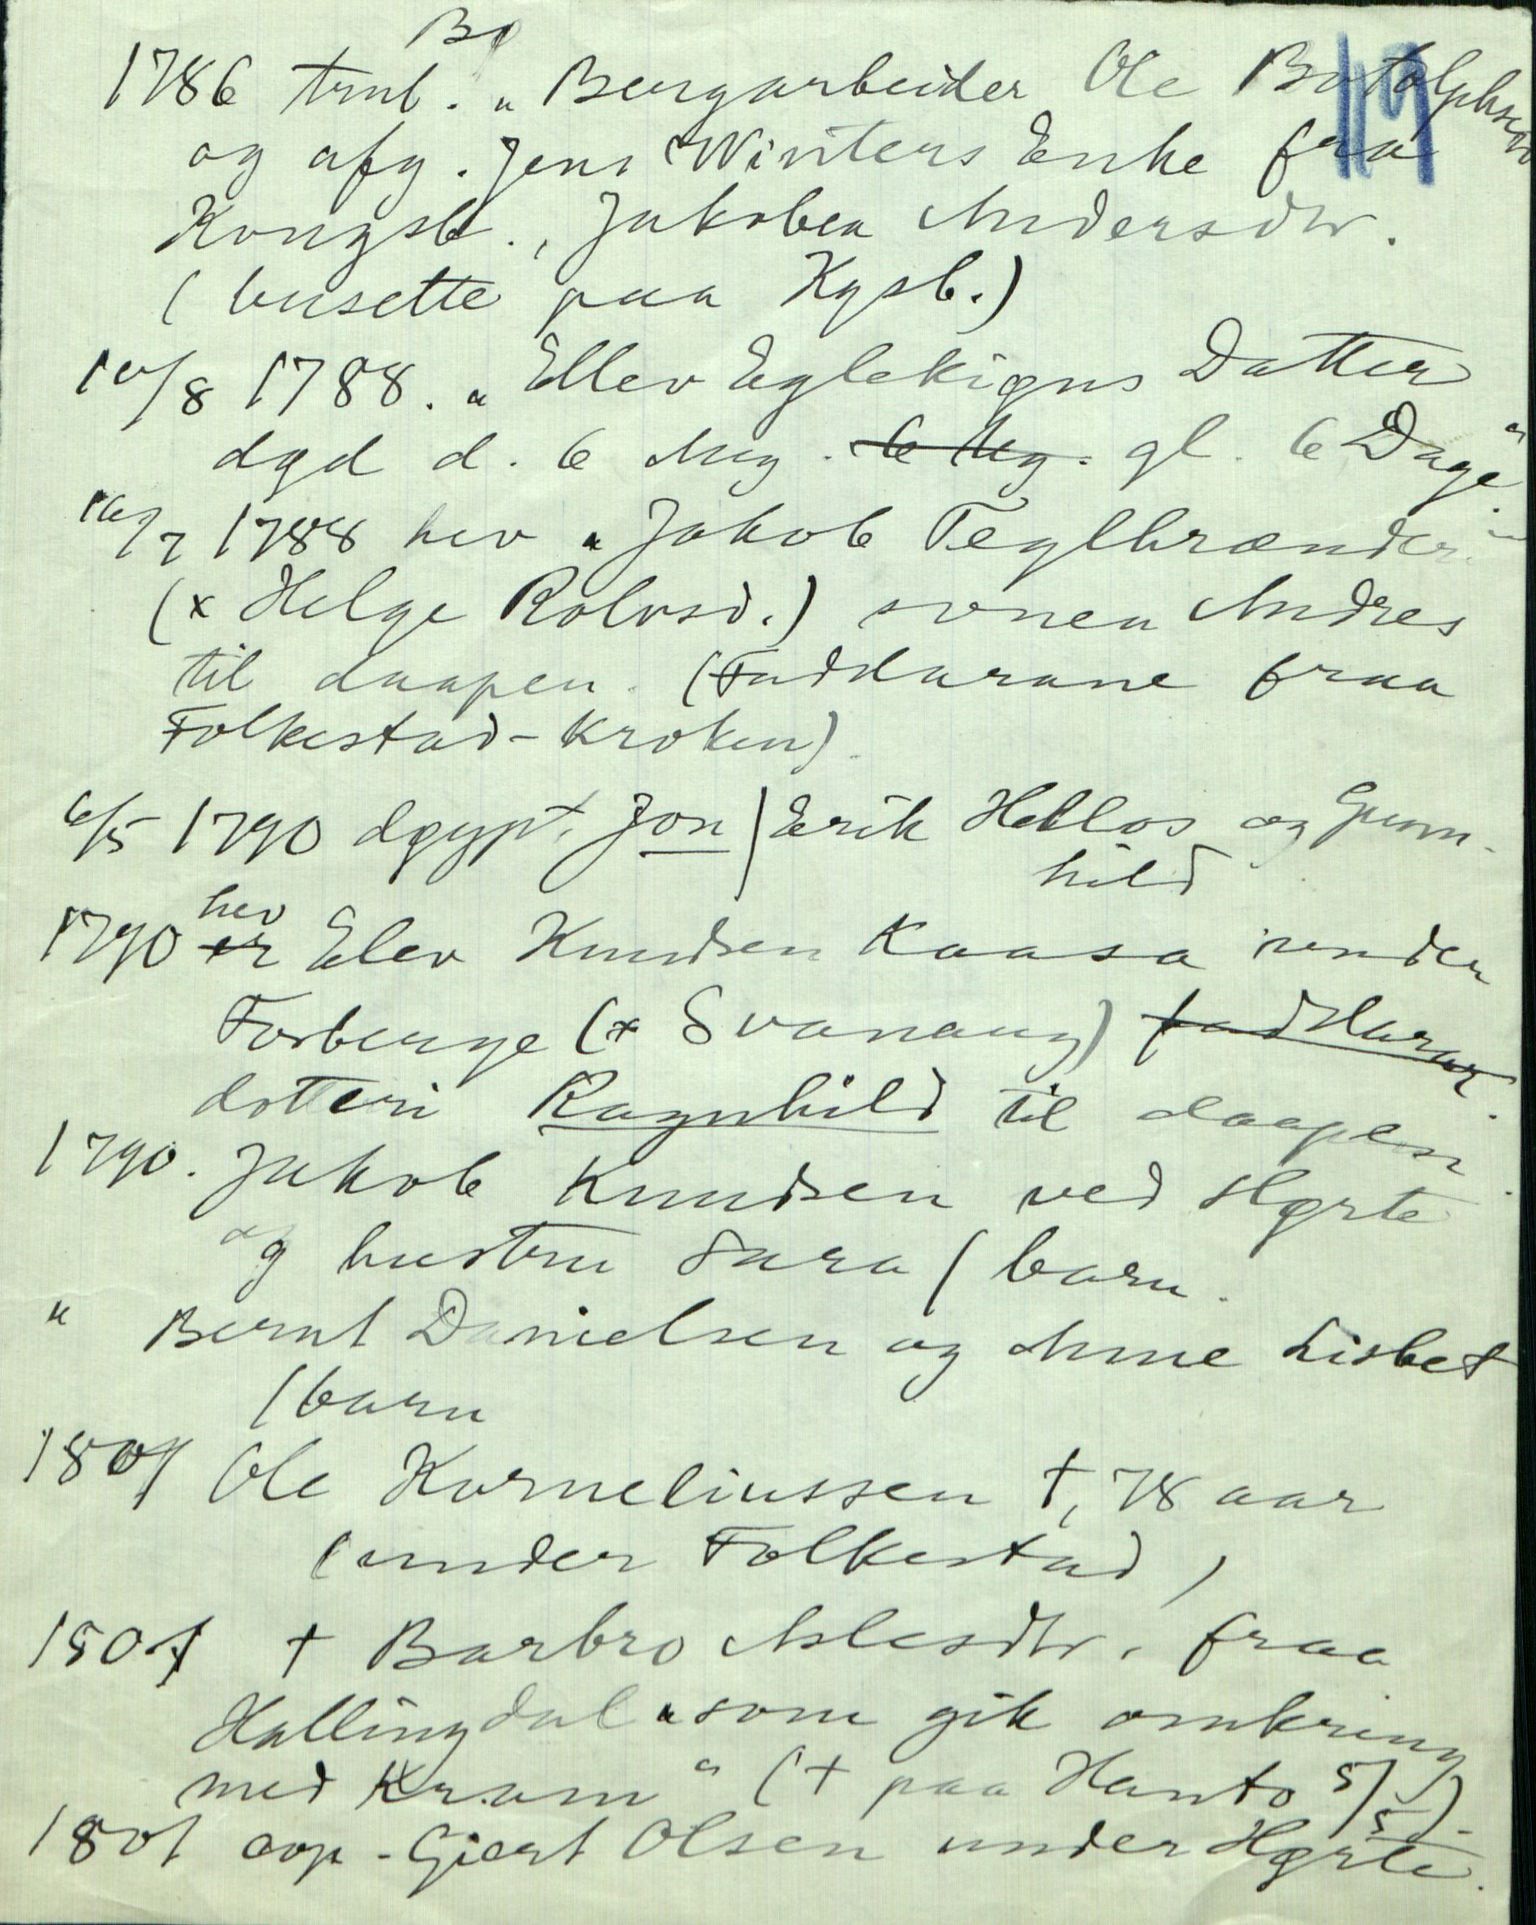 Bø
119
1786 trul. „ Bergarbeider Ole Botolphsen
og afg. Jens Winters Enke fra
Kongsb., Jakobea Andersdtr.
( busette paa Kgsb.)
10/8 1788. „ Ellev Eglekigns Datter
dgd d. 6 Aug. 6 Aug. gl. 6 Dage“
16/7 1788 hev „ Jakob Teglbrænder“
(x Helge Rolvsd.) sonen Andres
til daapen. (Faddarane fraa
Folkestad-kroken).
6/5 1790 dgypt. Jon / Erik Hellos og Gunn-
hild
hev
1790 er Elev Knudsen Kaasa under
Forberge (x Svanaug) faddarar
dotteri Ragnhild til daapen.
1790. Jakob Knudsen ved Hørte
og hustru Sara / barn.
„ Bernt Danielsen og Anne Lisbet
/ barn
1801 Ole Korneliussen †, 78 aar
(under Folkestad)
1801 † Barbro Aslesdtr. fraa
Hallingdal „som gik omkring
med Kram“ († paa Hanto 5/5).
1801 cop. Giert Olsen under Hørte.